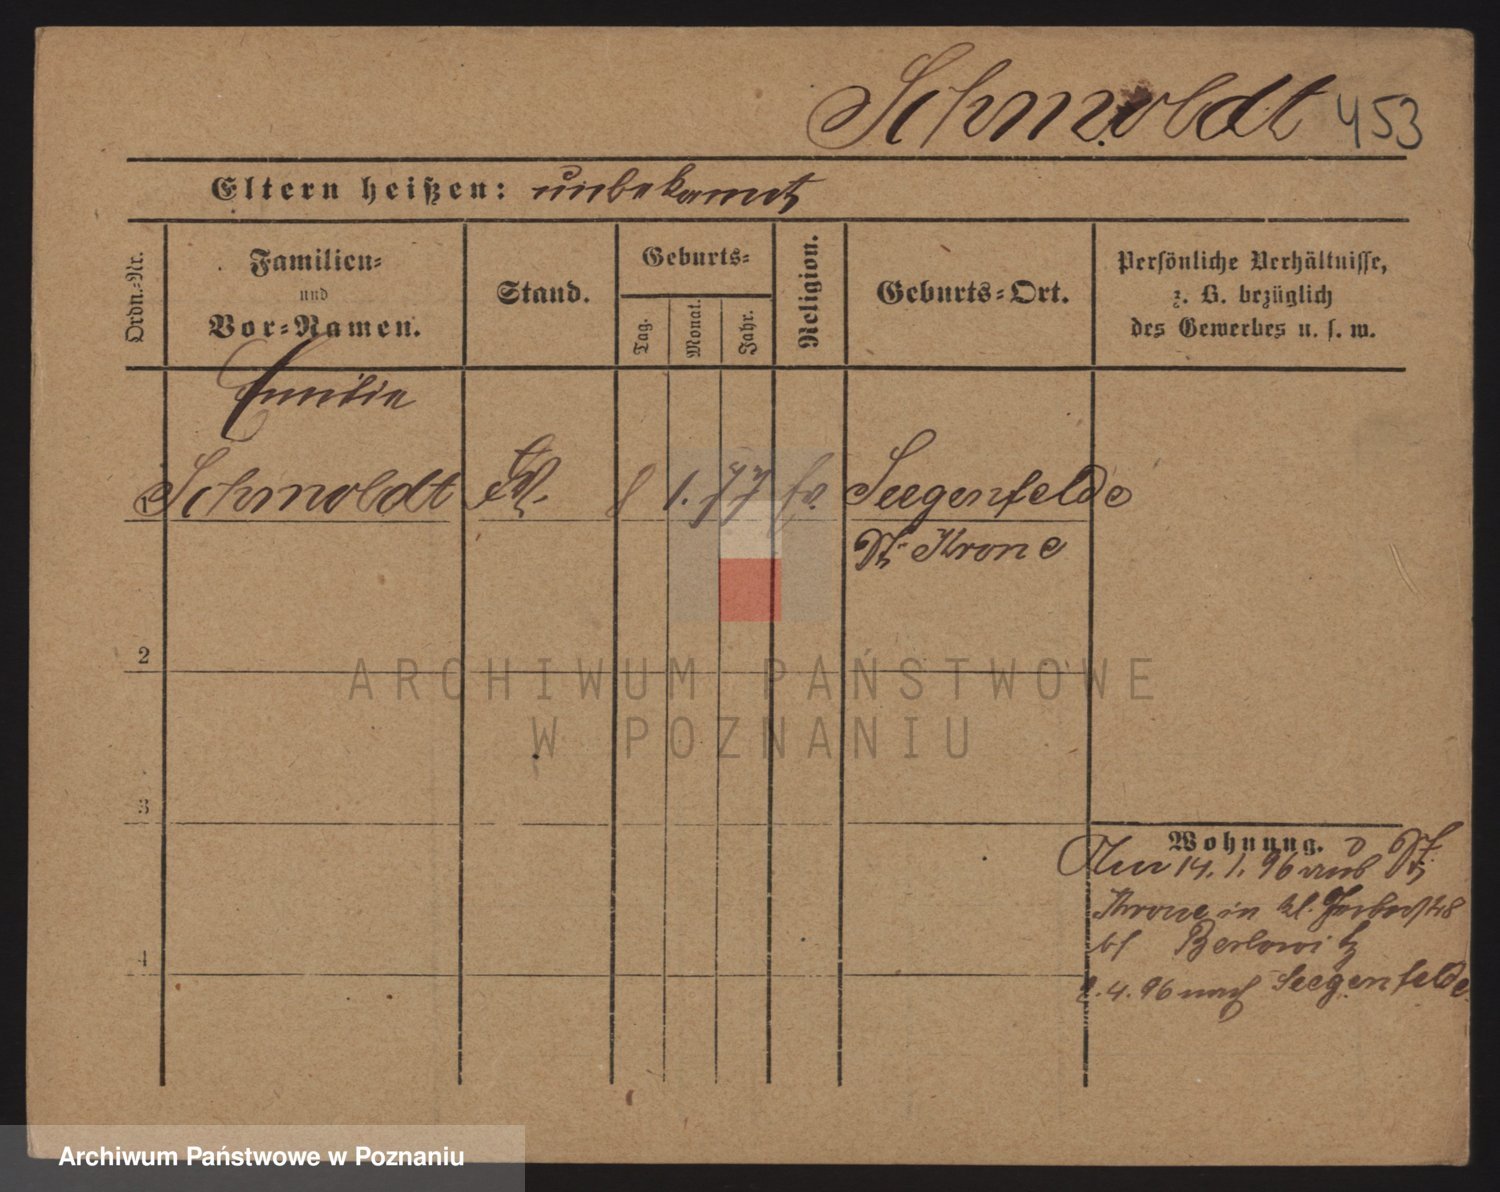 Schmoldt 453
Eltern heißen: unbekannt
Ordn.-Nr.
Familien-
und
Vor-Namen.
Stand.
Geburts-
Tag.
Monat.
Jahr.
Religion.
Geburts-Ort.
Persönliche Verhältnisse,
z. B. bezüglich
des Gewerbes u. s. w.
Emilie
1 Schmoldt 8 1. 77 Seegenfelde
Dt. Krone
2
ARCHIWUM PAŃSTWOWE
W POZNANIU
3
Wohnung.
14. 1. 96 aus Dt
Krone in kl.
bei Berlowitz
4
4. 96 nach Seegenfelde
Archiwum Państwowe w Poznaniu